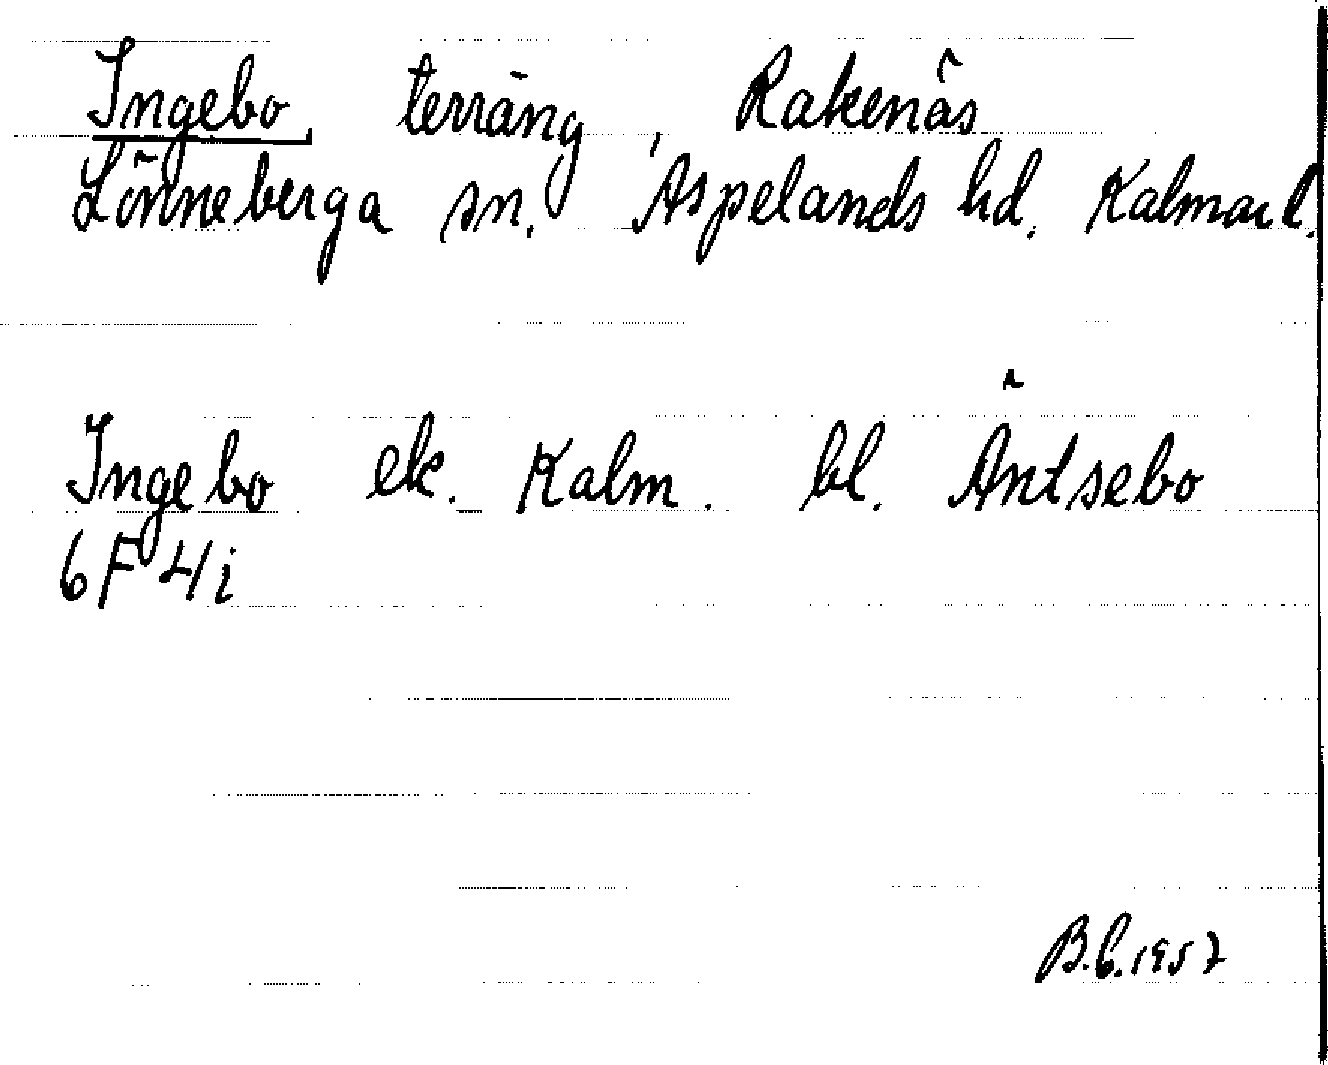 Ingebo, terräng, Rakenäs
Lönneberga sn. Aspelands hd. Kalmar l.
Ingebo ek. Kalm. bl. Äntsebo
6F 4i
B.C. 1957